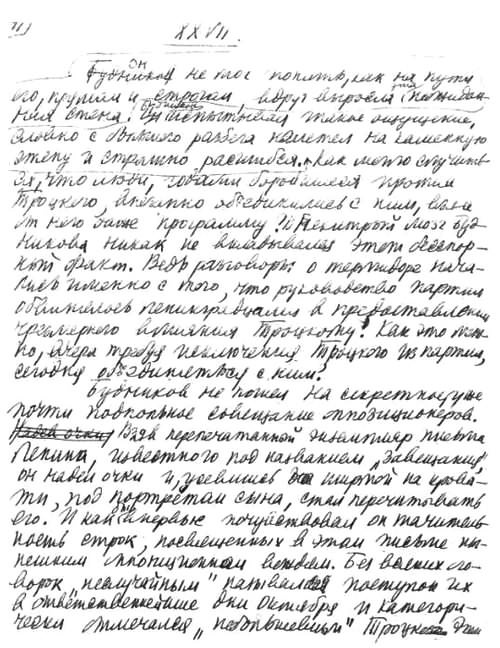 XXVII.
Будников не мог понять, как на пути
его, прямом и строгом, вдруг выросла неожидан-
ная стена. Он испытывал такое ощущение,
словно с большого разбега налетел на каменную
стену и страшно расшибся. Как могло случить-
ся, что люди, годами боровшиеся против
Троцкого, внезапно объединились с ним, взяв
от него даже программу? Нехитрый мозг Буд-
никова никак не вкладывался этот бесспор-
ный факт. Ведь разговоры о термидоре нача-
лись именно с того, что руководство партии
обвинялось ленинградцами в предоставлении
чрезмерного влияния Троцкому! Как это мож-
но, вчера требуя исключения Троцкого из партии,
сегодня объединяться с ним?
Будников не пошел на секретное, уже
почти подпольное совещание оппозиционеров.
Надев очки Взяв перепечатанный экземпляр письма
Ленина, известного под названием „Завещания",
он надел очки и, усевшись на крова-
ти, под портретом сына, стал перечитывать
его. И как бы впервые почувствовал он значитель-
ность строк, посвященных в этом письме ны-
нешним оппозиционным вождям. Без всяких ого-
ворок „неслучайным" назывался поступок их
в ответственнейшие дни Октября и категори-
чески отмечался „небольшевизм" Троцкого. Эти